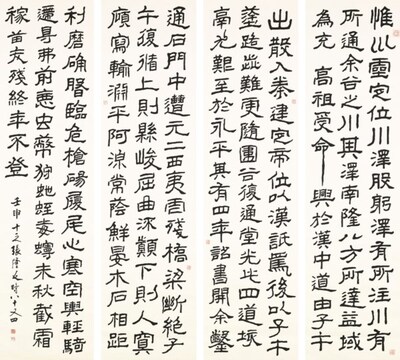 惟川靈定位川澤股躬澤有所注川有
所通余谷之川其澤南隆八方所達益域
為充 高祖受命興於漢中道由子午
出散入秦建定帝位以漢詆焉後以子午
塗路歰難更隨圍谷復通堂光此四道垓
鬲尤艱至於永平其有四年詔書開余鑿
通石門中遭元二西夷虐殘橋梁斷絕子
午復循上則縣峻屈曲流顛下則入冥
廎寫輸淵平阿常蔭鮮晏木石相距
利磨确磐臨危槍碭履尾心寒空輿輕騎
遰㝵弗前惡虫幣狩虵蛭毒蟃未秋截霜
稼苗夭殘終年不登
壬申十二月張隆延時八十又四